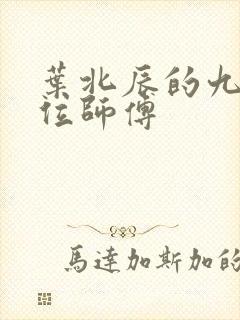 葉北辰的九
位師傅
馬達加斯加的